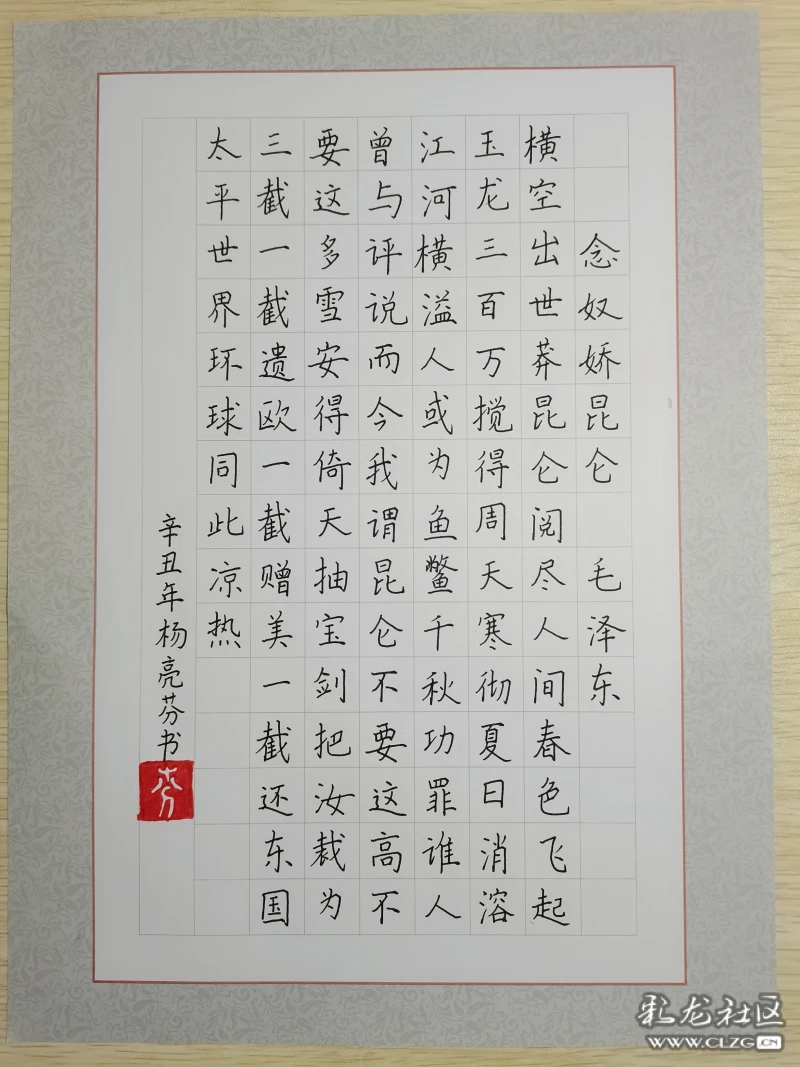 念奴娇昆仑 毛泽东
横空出世莽昆仑阅尽人间春色飞起
玉龙三百万搅得周天寒彻夏日消溶
江河横溢人或为鱼鳖千秋功罪谁人
曾与评说而今我谓昆仑不要这高不
要这多雪安得倚天抽宝剑把汝裁为
三截一截遗欧一截赠美一截还东国
太平世界环球同此凉热
辛丑年杨亮芬书
彩龙社区
WWW.CLZG.CN